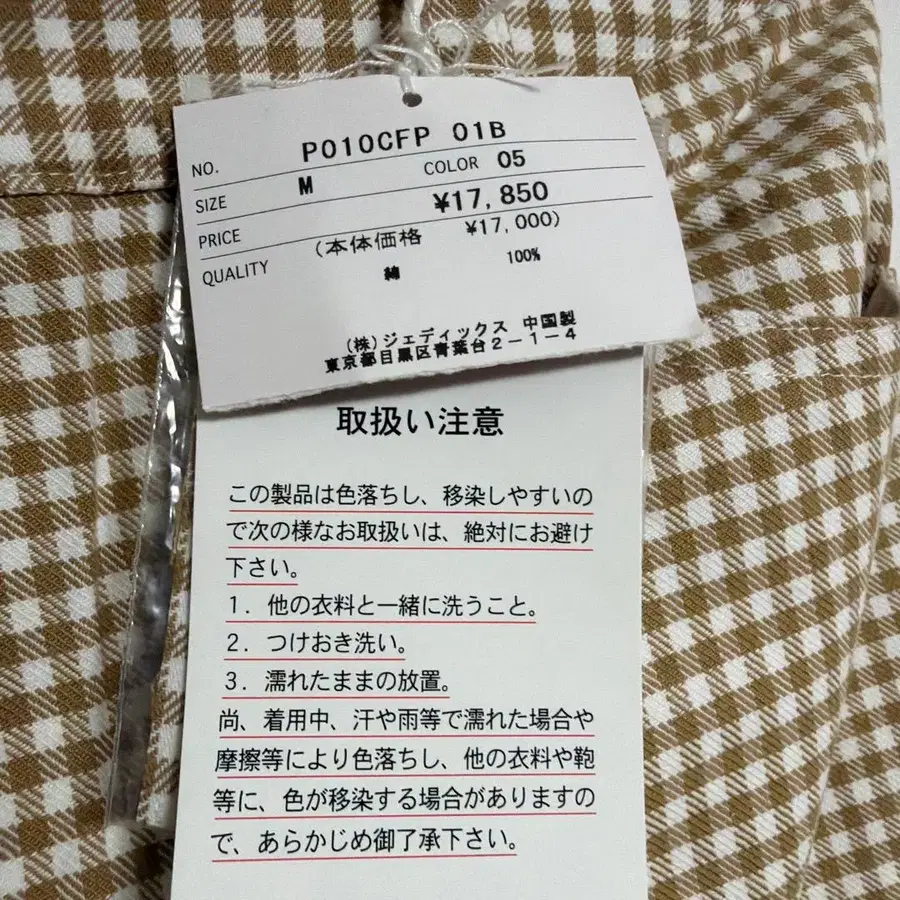 NO. P010CFP 01B
SIZE M COLOR 05
PRICE ¥17,850
(本体価格 ¥17,000)
QUALITY 綿 100%
(株)ジェディックス 中国製
東京都目黒区青葉台2-1-4
取扱い注意
この製品は色落ちし、移染しやすいの
で次の様なお取扱いは、絶対にお避け
下さい。
1. 他の衣料と一緒に洗うこと。
2. つけおき洗い。
3. 濡れたままの放置。
尚、着用中、汗や雨等で濡れた場合や
摩擦等により色落ちし、他の衣料や鞄
等に、色が移染する場合がありますの
で、あらかじめ御了承下さい。